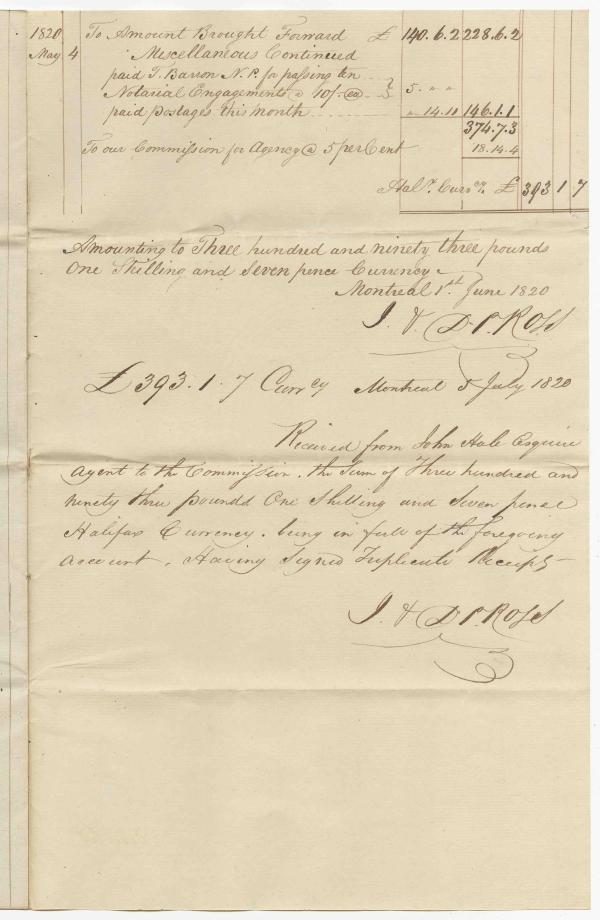 1820 To Amount Brought Forward £ 140.6.2 228.6.2
May 4 Miscellaneous Continued
paid T. Barron N.P. for passing ten
Notarial Engagements @ 10/- ea 5 " "
paid postages this month " 14.11 146.1.1
374.7.3
To our Commission for Agency @ 5 per Cent 18.14.4
Halx. Curr cy. £ 393 1 7
Amounting to Three hundred and ninety three pounds
One Shilling and Seven pence Currency
Montreal 1st. June 1820
J. & D. P. Ross
£393.1.7 Curr cy Montreal 5 July 1820
Received from John Hale Esquire
Agent to the Commission. the Sum of Three hundred and
ninety three pounds One Shilling and Seven pence
Halifax Currency. being in full of the foregoing
account, Having Signed Triplicate Receipts
J. & D. P. Ross